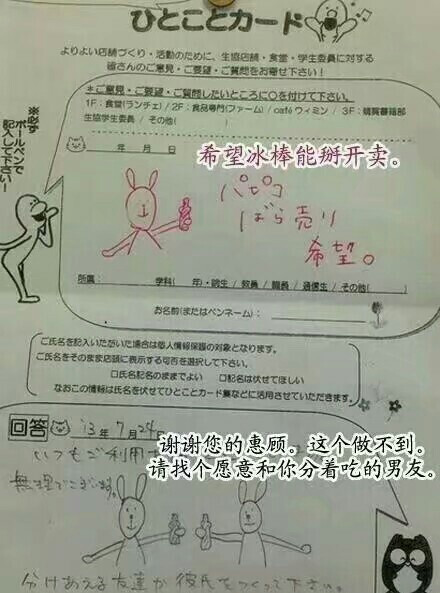 ひとことカード
よりよい店舗づくり・活動のために、生協店舗・食堂・学生委員に対する
皆さんのご意見・ご要望・ご質問をお寄せ下さい！
※必ず
ボールペンで
記入して下さい！
*ご意見・ご要望・ご質問したいところに○を付けて下さい。
1F：食堂(ランチェ) / 2F：食品専門(ファーム) / café ヴィミン / 3F：購買書籍部
生協学生委員 / その他(　　)
年　月　日
希望冰棒能掰开卖。
パピコ
ばら売り
希望。
所属：　　学科(　年)・院生 / 教員 / 職員 / 通信生 / その他(　　)
お名前(またはペンネーム)：
ご氏名を記入いただいた場合は個人情報保護の対象となります。
ご氏名をそのまま店頭に表示する可否を選択して下さい。
□氏名記名のままでよい　□記名は伏せてほしい
なおこの情報は氏名を伏せてひとことカード集などに活用させていただきます。
回答 '13年7月24日
谢谢您的惠顾。这个做不到。
いつもご利用
请找个愿意和你分着吃的男友。
無理でございます。
分けあえる友達か彼氏をつくって下さい。